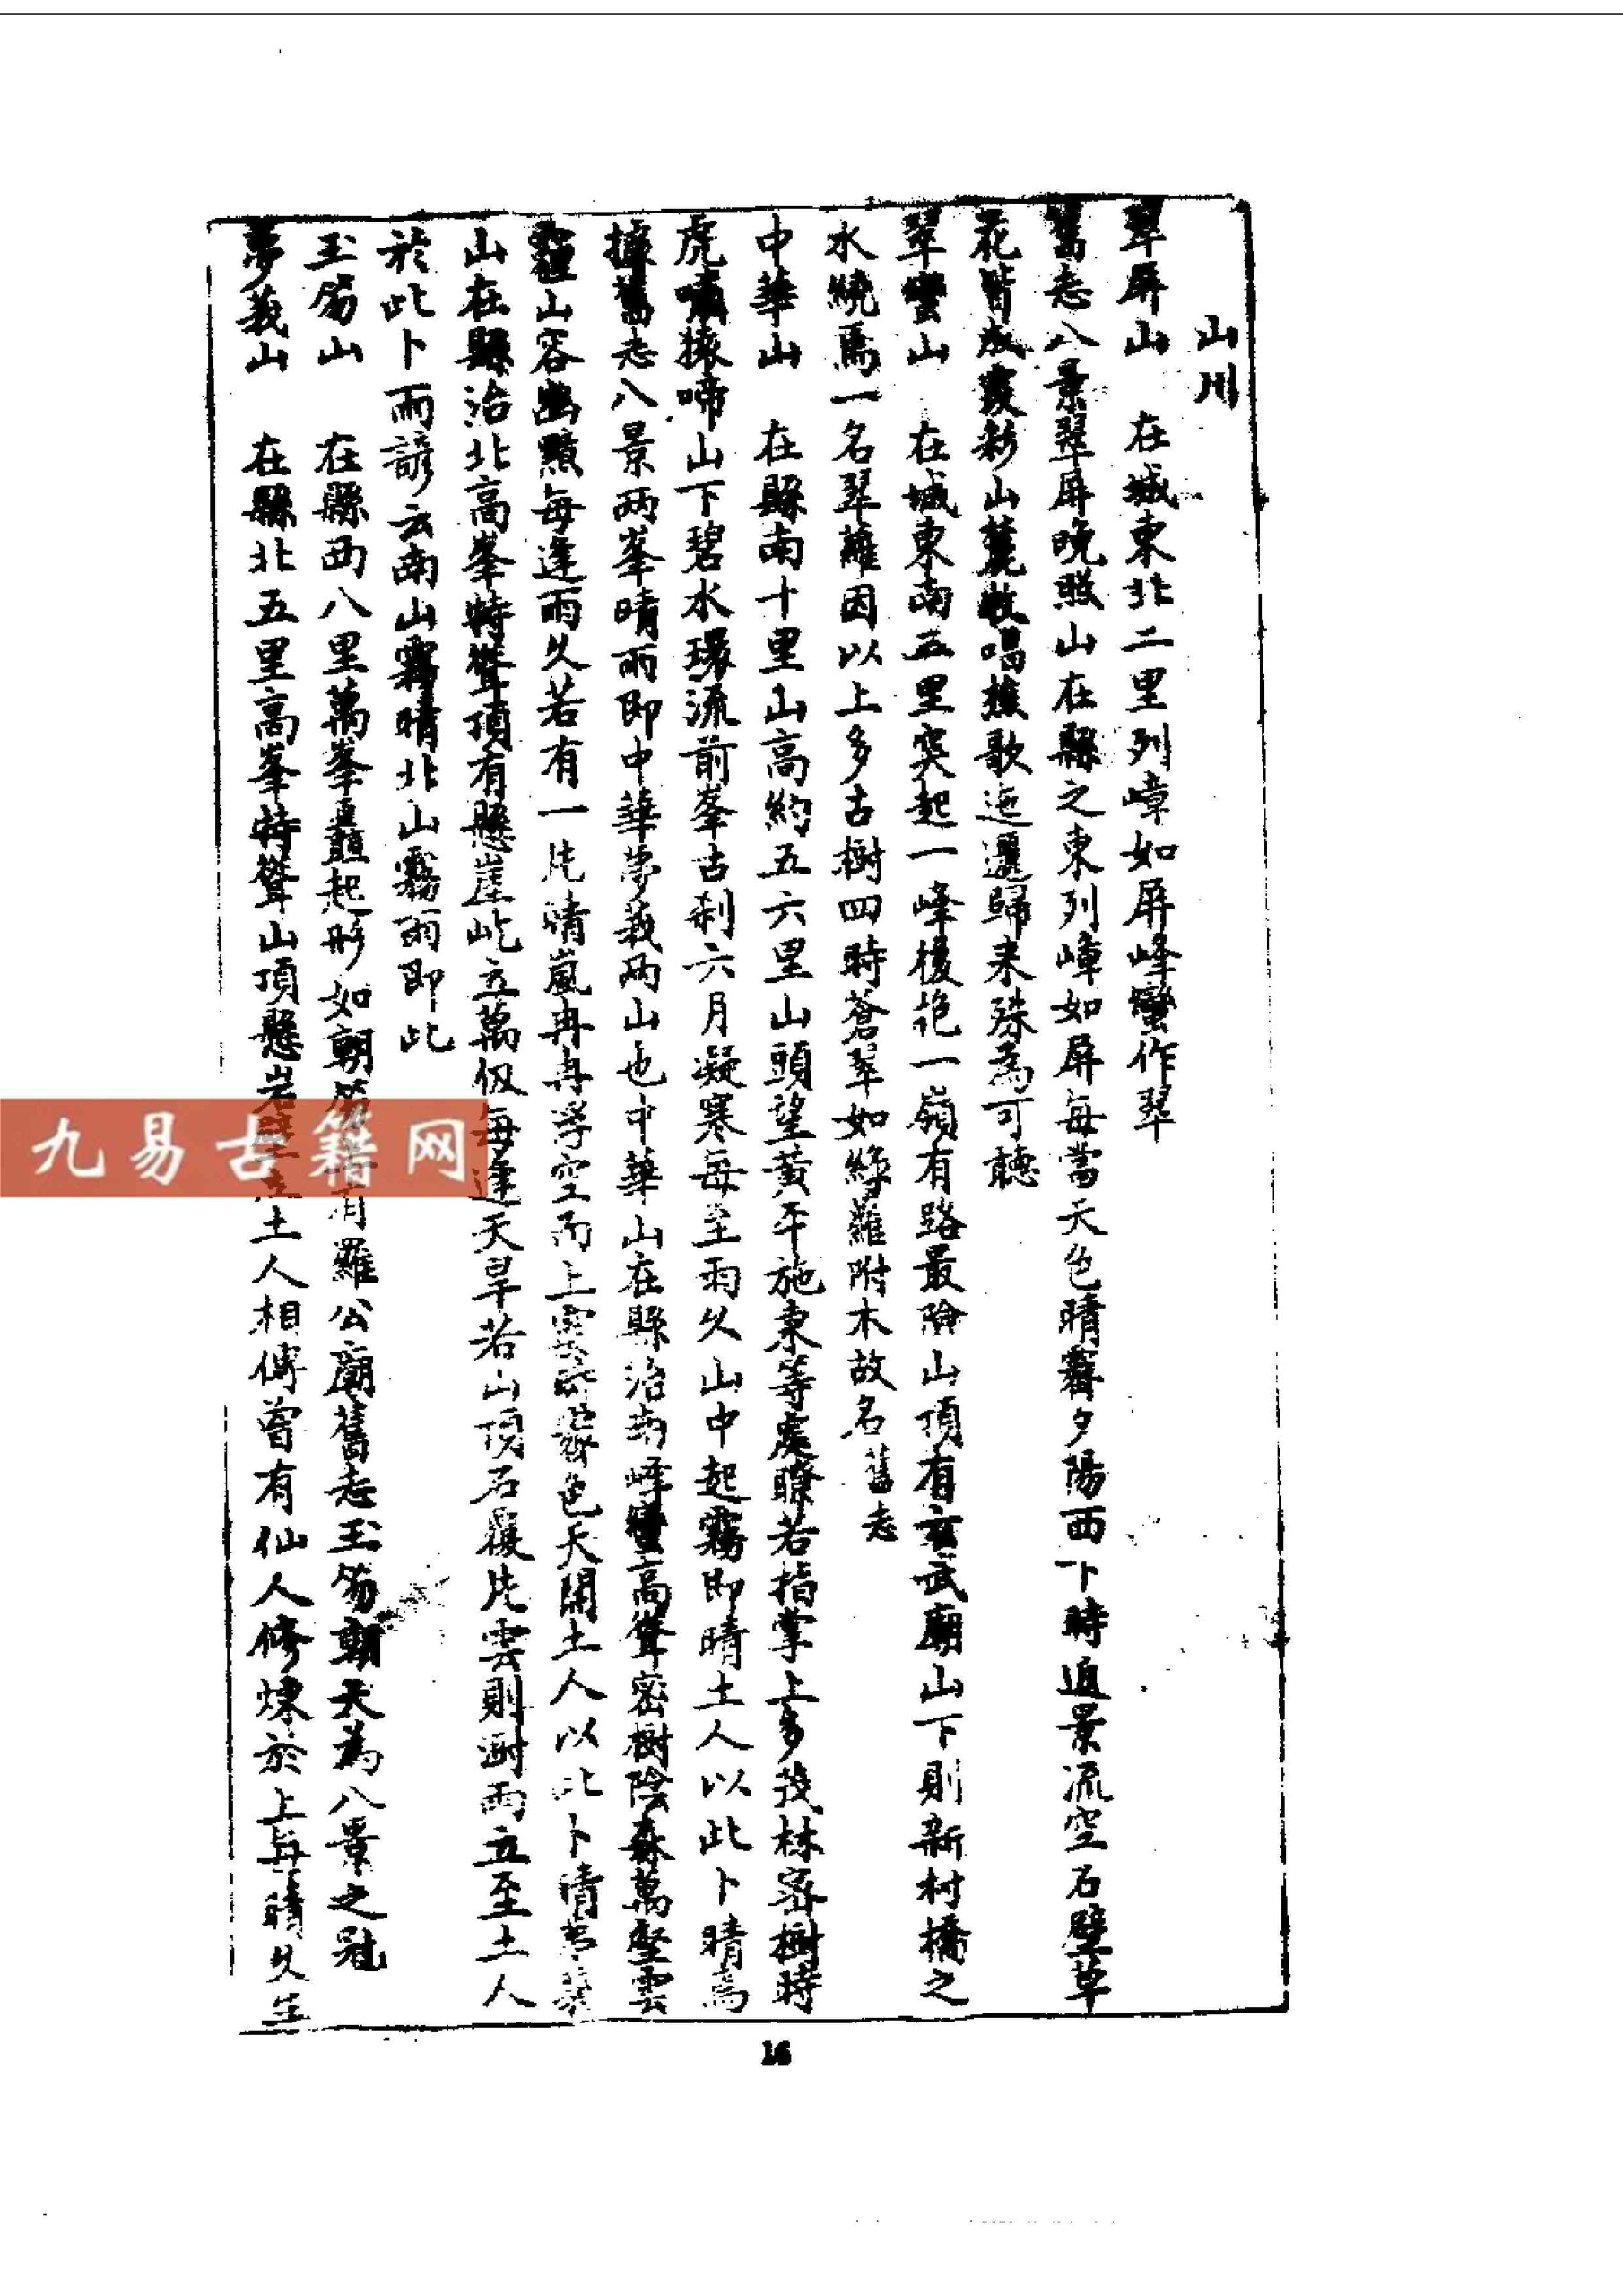 山川
翠屏山 在城東北二里列嶂如屏峰巒作翠
舊志八景翠屏晚照山在縣之東列嶂如屏每當天色晴霽夕陽西下時返景流空石壁草
花皆成霞彩山麓牧唱樵歌迤邐歸来殊為可聽
翠巒山 在城東南五里突起一峰後挹一嶺有路最險山頂有玄武廟山下則新村橋之
水繞焉一名翠蘿因以上多古樹四時蒼翠如綠蘿附木故名舊志
中華山 在縣南十里山高約五六里山頭望黃平施秉等處瞭若指掌上多茂林密樹時
虎嘯猿啼山下碧水環流前峯古剎六月凝寒每至雨久山中起霧即晴土人以此卜晴焉
據舊志八景两峯晴雨即中華夢義两山也中華山在縣治南峰巒高聳密樹陰森萬壑雲
山容幽黯每逢雨久若有一片晴嵐冉冉浮空而上霽色天開土人以此卜晴夢義
山在縣治北高峯特聳頂有懸崖屹立萬仭每逢天旱若山頂石覆片雲則澍雨立至土人
於此卜雨諺云南山霧晴北山霧雨即此
玉笏山 在縣西八里萬峯矗起形如朝笏有羅公廟舊志玉笏朝天為八景之冠
夢義山 在縣北五里高峯特聳山頂懸岩土人相傳曾有仙人修煉於上每晴久生
16
九易古籍网